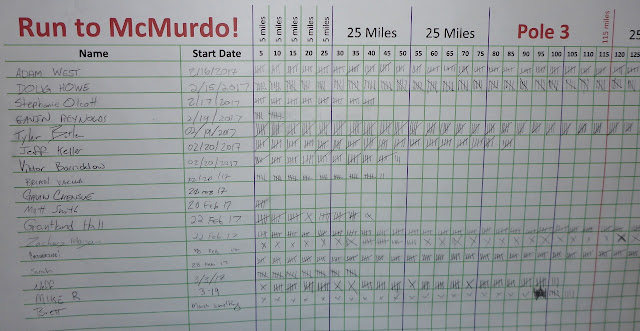 Run to McMurdo!
5 miles 5 miles 5 miles 5 miles 5 miles 25 Miles 25 Miles Pole 3 115 miles 25
Name Start Date 5 10 15 20 25 30 35 40 45 50 55 60 65 70 75 80 85 90 95 100 105 110 115 120 125
ADAM WEST 2/16/2017
DOUG HOWE 2/15/2017
Stephanie Olcott 2/17/2017
GAVIN REYNOLDS 2/19/2017
Tyler 02/19/2017
Jeff Keller 02/20/2017
Viktor Barricklow 02/20/2017
BRIAN
GAVIN CHENSUE 20 FEB 17
Matt Smith 20 Feb 17
Grantland Hall 22 Feb 17
Zachary 22 Feb 17
Sarah 28 Feb 17
MIKE R 3-19
Brett